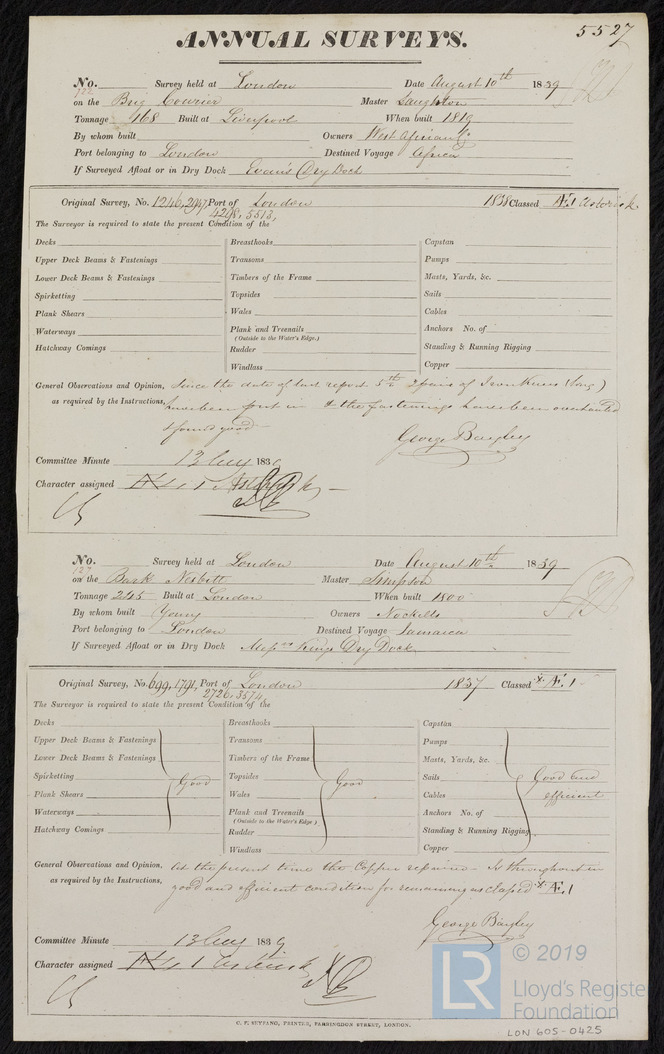 5527
ANNUAL SURVEYS.
No. 122 Survey held at London Date August 10th 1839
on the Brig Courier Master Laughton
Tonnage 168 Built at Liverpool When built 1819
By whom built Owners West African Co
Port belonging to London Destined Voyage Africa
If Surveyed Afloat or in Dry Dock Evans Dry Dock
Original Survey, No. 1246, 2947, Port of London 1838 Classed Æ.1 Asterisk.
4208, 5513,
The Surveyor is required to state the present Condition of the
Decks Breasthooks Capstan
Upper Deck Beams & Fastenings Transoms Pumps
Lower Deck Beams & Fastenings Timbers of the Frame Masts, Yards, &c.
Spirketting Topsides Sails
Plank Shears Wales Cables
Waterways Plank and Treenails Anchors No. of
(Outside to the Water's Edge.)
Hatchway Comings Rudder Standing & Running Rigging
Windlass Copper
General Observations and Opinion, Since the date of last report 5th 2 pairs of Iron Knees (long)
as required by the Instructions, have been put in & the fastenings have been overhauled
& found good
George Bayley
Committee Minute 13 Aug 1839
Character assigned Æ 1 Asterisk
No. 127 Survey held at London Date August 10th 1839
on the Bark Nesbitt Master Simpson
Tonnage 245 Built at London When built 1800
By whom built Young Owners Nockells
Port belonging to London Destined Voyage Jamaica
If Surveyed Afloat or in Dry Dock Mess rs Kings Dry Dock
Original Survey, No. 699, 1791, Port of London 1837 Classed * Æ.1
2726, 3574
The Surveyor is required to state the present Condition of the
Decks Breasthooks Capstan
Upper Deck Beams & Fastenings Transoms Pumps
Lower Deck Beams & Fastenings Timbers of the Frame Masts, Yards, &c.
Spirketting Good Topsides Good Sails Good and
Plank Shears Wales Cables efficient
Waterways Plank and Treenails Anchors No. of
(Outside to the Water's Edge.)
Hatchway Comings Rudder Standing & Running Rigging
Windlass Copper
General Observations and Opinion, At the present time the Copper repaired - Is throughout in
as required by the Instructions, good and efficient condition for remaining as classed * Æ.1
George Bayley
Committee Minute 13 Aug 1839
Character assigned Æ 1 Asterisk
© 2019
LR Lloyd's Register
Foundation
C. F. SEYFANG, PRINTER, FARRINGDON STREET, LONDON.
LON 605-0425